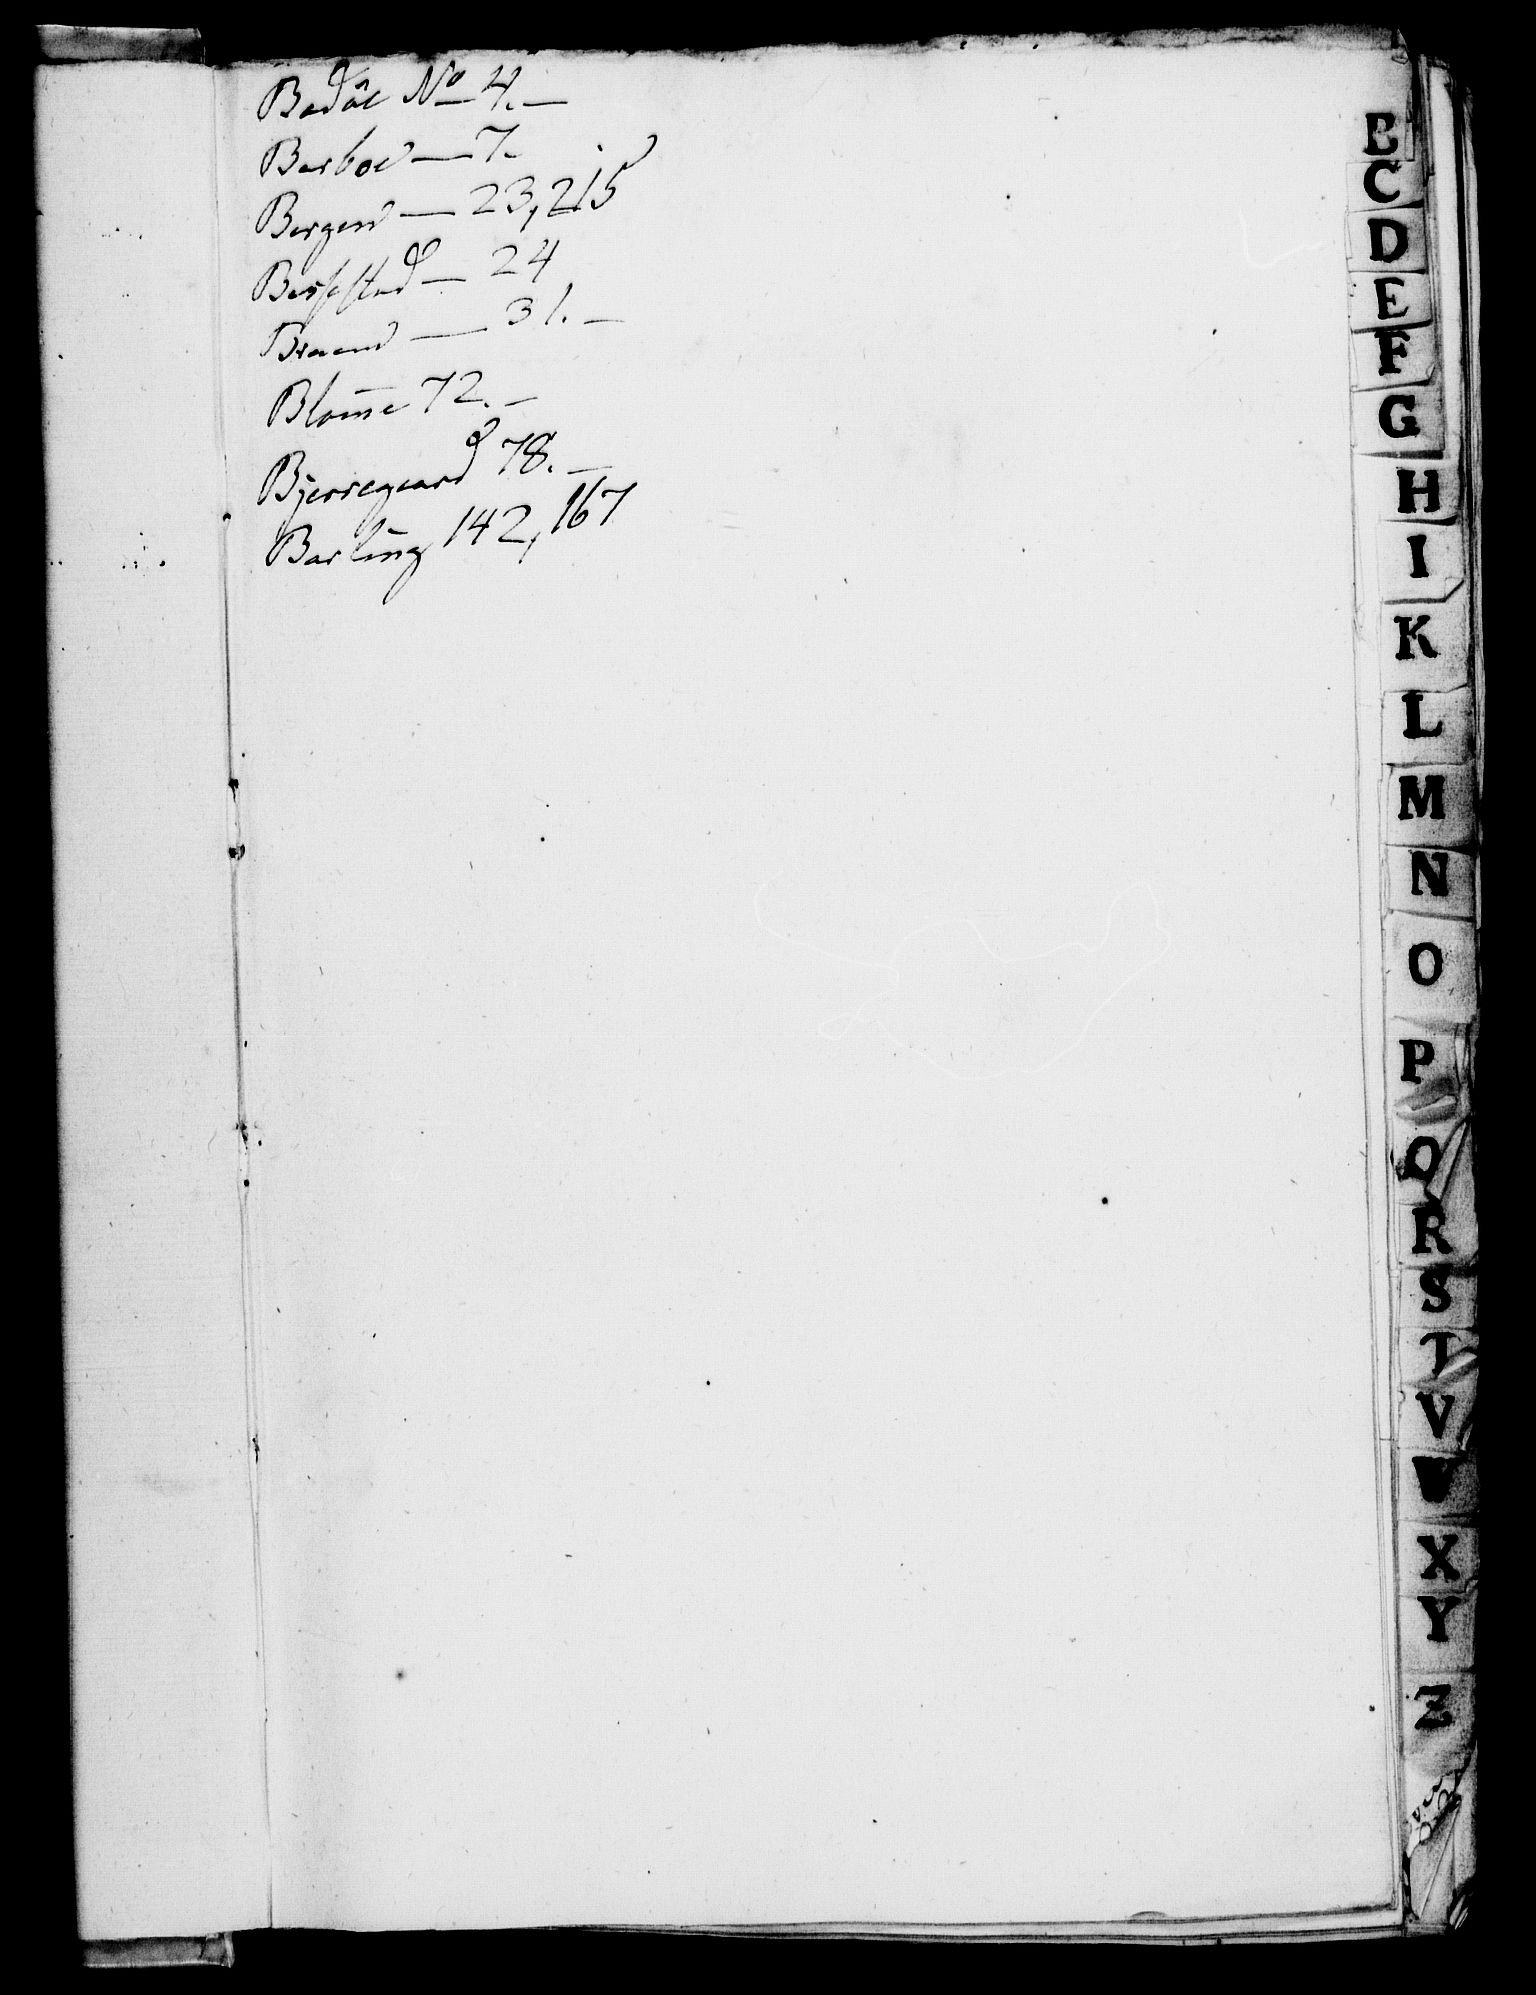 Badôe No 4. —
Barboe — 7.
Bergen — 23, 215
Bessestad — 24
Braem — 31. —
Blome 72. —
Bjerregaard 78. —
Barling 142, 167
B
C
D
E
F
G
H
I
K
L
M
N
O
P
Q
R
S
T
V
W
X
Y
Z